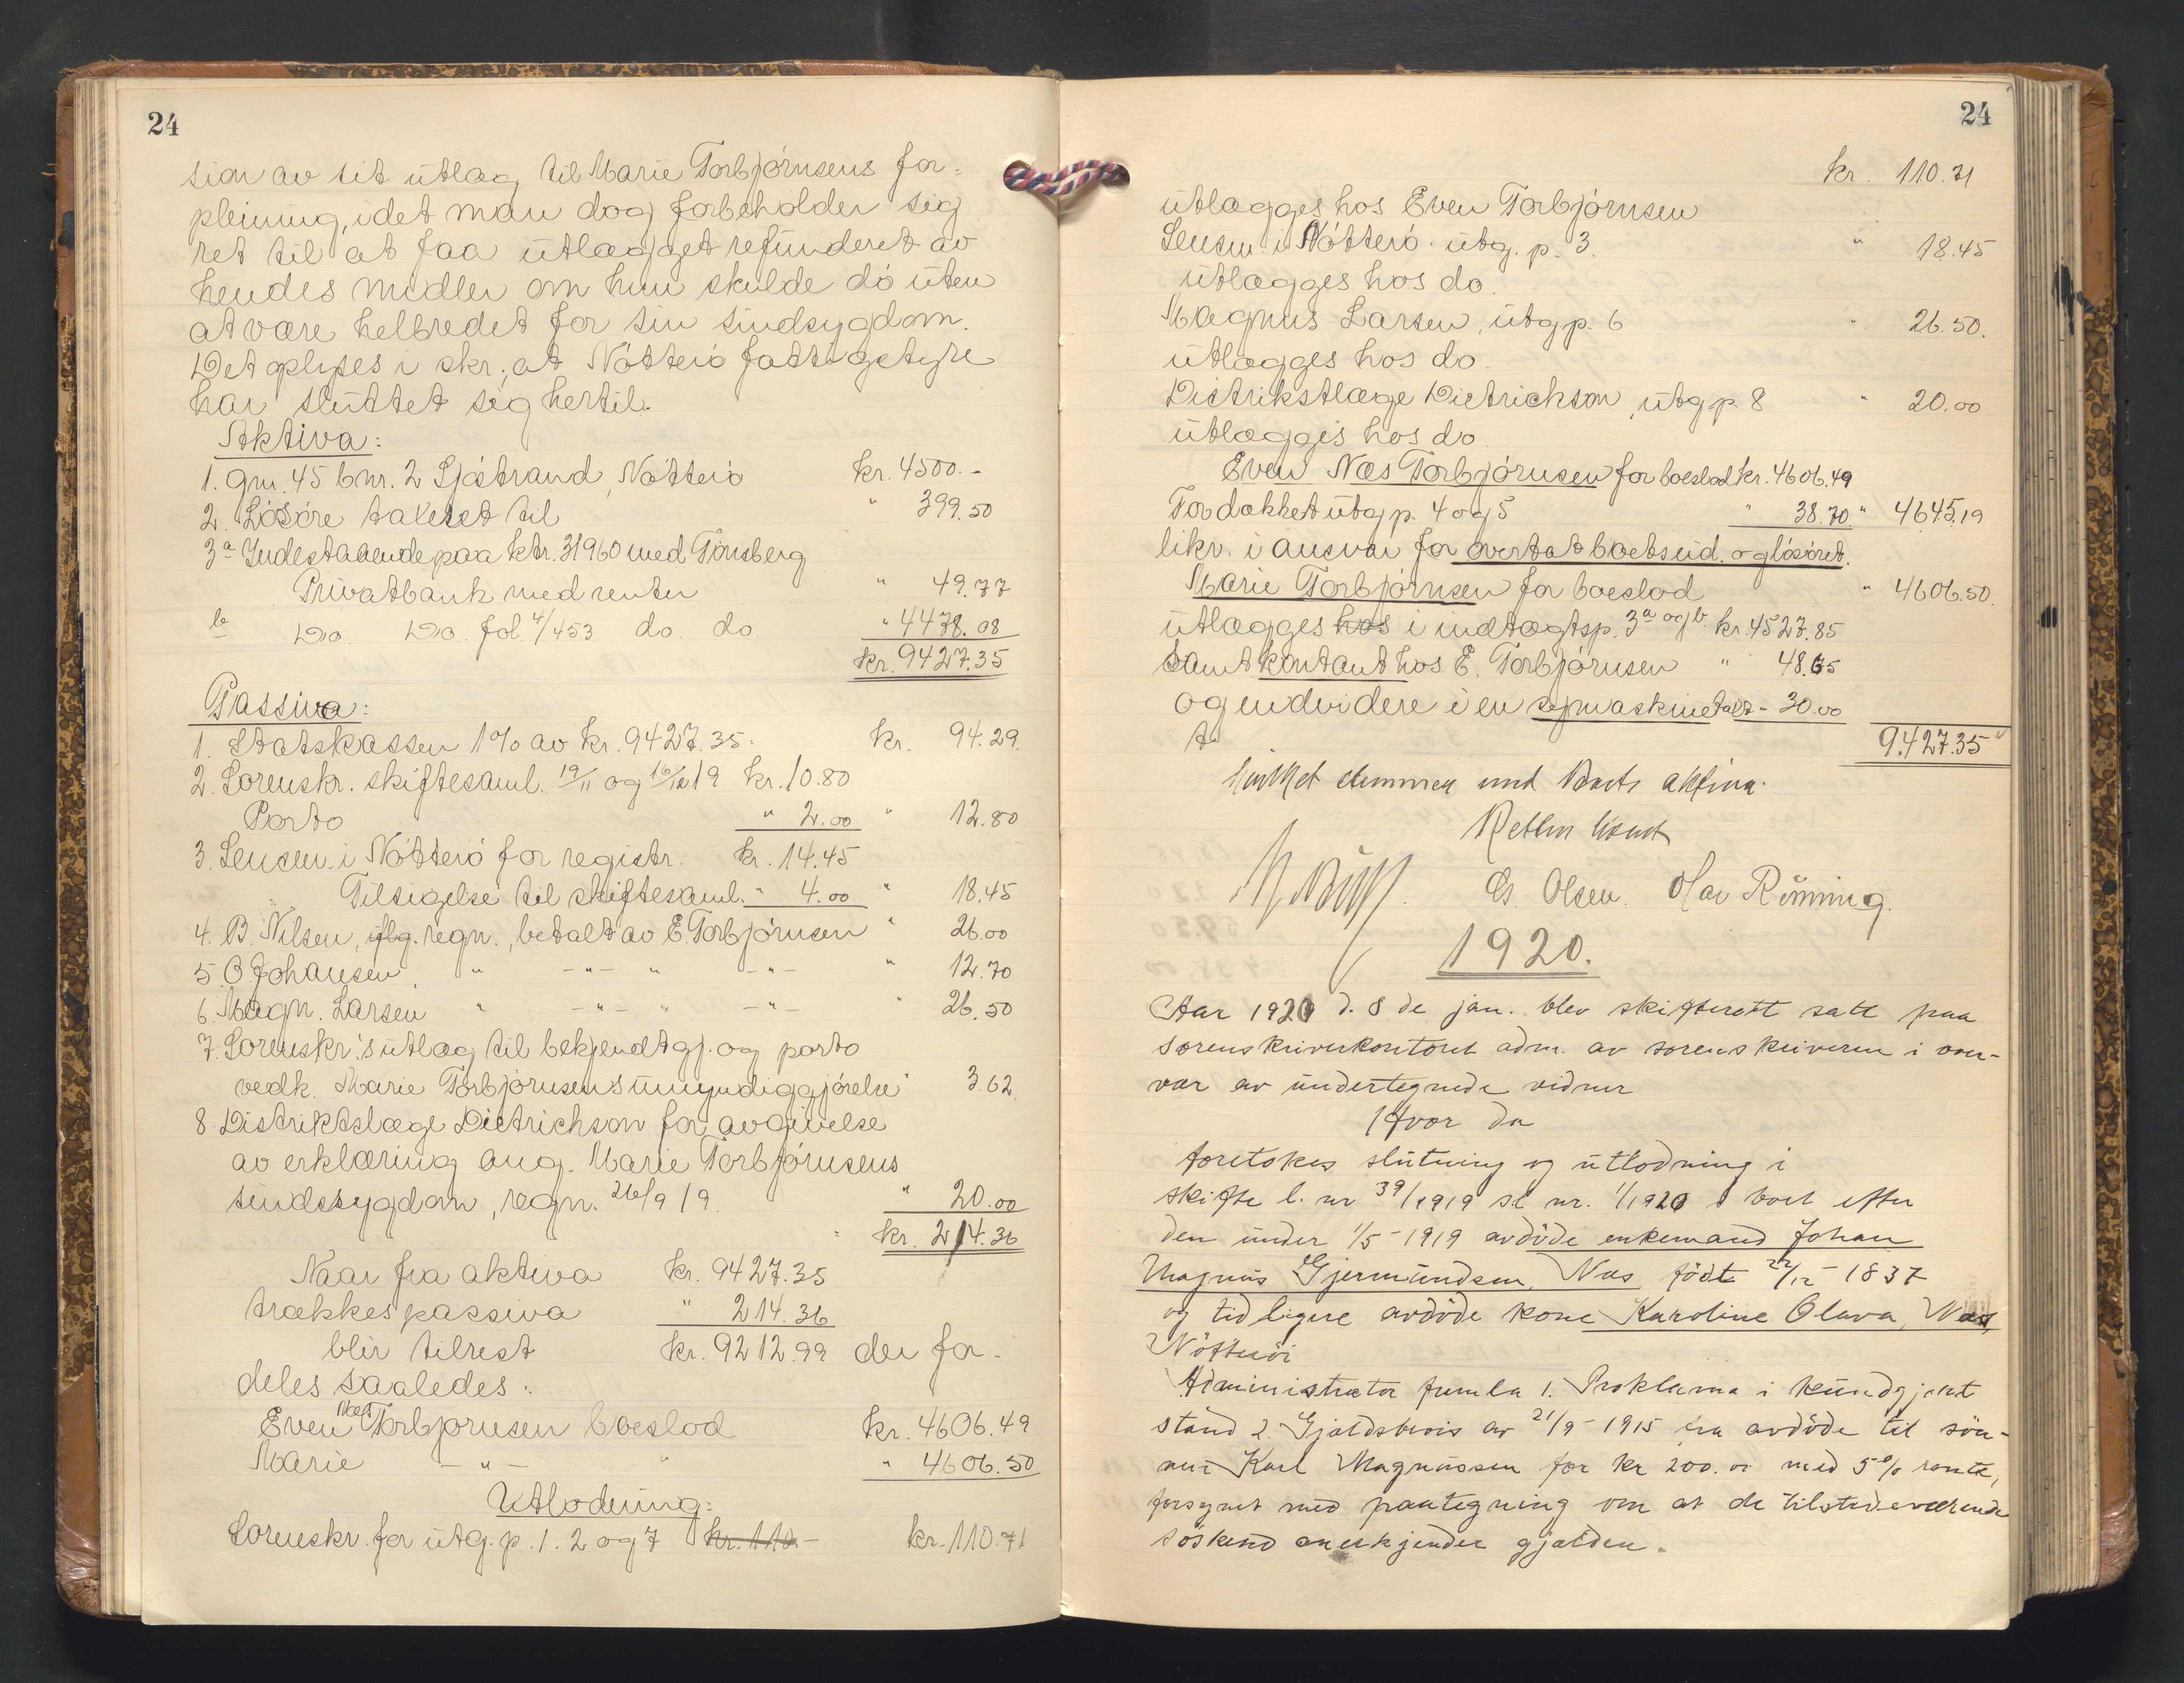 24
sion av sit utlæg til Marie Torbjørnsens for=
pleining, idet man dog forbeholder sig
ret til at faa utlægget refunderet av
hendes midler om hun skulde dø uten
at være helbredet for sin sindsygdom.
Det oplyses i skr., at Nøtterø fattigstyre
har sluttet sig hertil.
Aktiva:
1. gnr. 45 bnr. 2 Sjøstrand, Nøtterø kr. 4500.-
2. Løsøre takseret til " 399.50
3a Indestaaende paa ktr. 31960 med Tønsberg
Privatbank med renter " 49.77
b Do. Do. fol. 4/453 do. do. " 4478.08
kr. 9427.35
Passiva:
1. Statskassen 1% av kr. 9427.35. kr. 94.29.
2. Sorenskr. skiftesaml. 19/11 og 16/12 19 kr. 10.80
Porto " 2.00 " 12.80
3. Lensm. i Nøtterø for registr. kr. 14.45
Tilsigelse til skiftesaml. " 4.00 " 18.45
4. B. Nilsen, iflg. regn., betalt av E. Torbjørnsen " 26.00
5. O Johansen, " -"- " -"- " 12.70
6. Magn. Larsen " -"- " -"- " 26.50
7. Sorenskr.'s utlæg til bekjendtgj. og porto
vedk. Marie Torbjørnsens umyndiggjørelse " 3.62
8. Distriktslæge Dietrichson for avgivelse
av erklæring ang. Marie Torbjørnsens
sindssygdom, regn. 26/9 19. " 20.00
kr. 214.36
Naar fra aktiva kr. 9427.35
trækkes passiva " 214.36
blir tilrest kr. 9212.99 der for-
deles saaledes:
Even Næs Torbjørnsen boeslod kr. 4606.49
Marie -"- " " 4606.50
Utlodning:
Sorenskr. for utg. p. 1. 2 og 7 kr. 110.- kr. 110.71
24
kr. 110.71
utlægges hos Even Torbjørnsen
Lensm. i Nøtterø utg. p. 3. " 18.45
utlægges hos do.
Magnus Larsen, utg p. 6 " 26.50.
utlægges hos do.
Distriktslæge Dietrichson, utg p. 8 " 20.00
utlægges hos do.
Even Næs Torbjørnsen for boeslod kr. 4606.49
For dækket utg p. 4 og 5 " 38.70 " 4645.19
likv. i ansvar for overtat boets eid. og løsøret.
Marie Torbjørnsen for boeslod " 4606.50.
utlægges hos i indtægtsp. 3a og b. kr. 4527.85
samt kontant hos E. Torbjørnsen " 48.65
og endvidere i en symaskine takt - 30.00
9.427.35
hvilket stemmer med Boets aktiva.
Retten hævet
Cs. Olsen. Olav Rönning.
1920.
Aar 1920 d. 8 de jan. blev skifterett satt paa
sorenskriverkontoret adm. av sorenskriveren i over-
vær av undertegnede vidner
Hvor da
foretokes slutning og utlodning i
skifte l. nr 39/1919 s.l. nr. 1/1920 i boet efter
den under 1/5-1919 avdöde enkemand Johan
Magnus Gjermundsen, Næs födt 22/12-1837
og tidligere avdöde kone Karoline Olava, Næs,
Nötteröi
Administrator fremla 1. Proklama i kundgjort
stand 2. Gjældsbevis av 21/9-1915 fra avdöde til søn-
nen Karl Magnussen for kr 200.00 med 5% rente,
forsynet med paategning om at de tilstedeværende
söskend anerkjender gjælden.